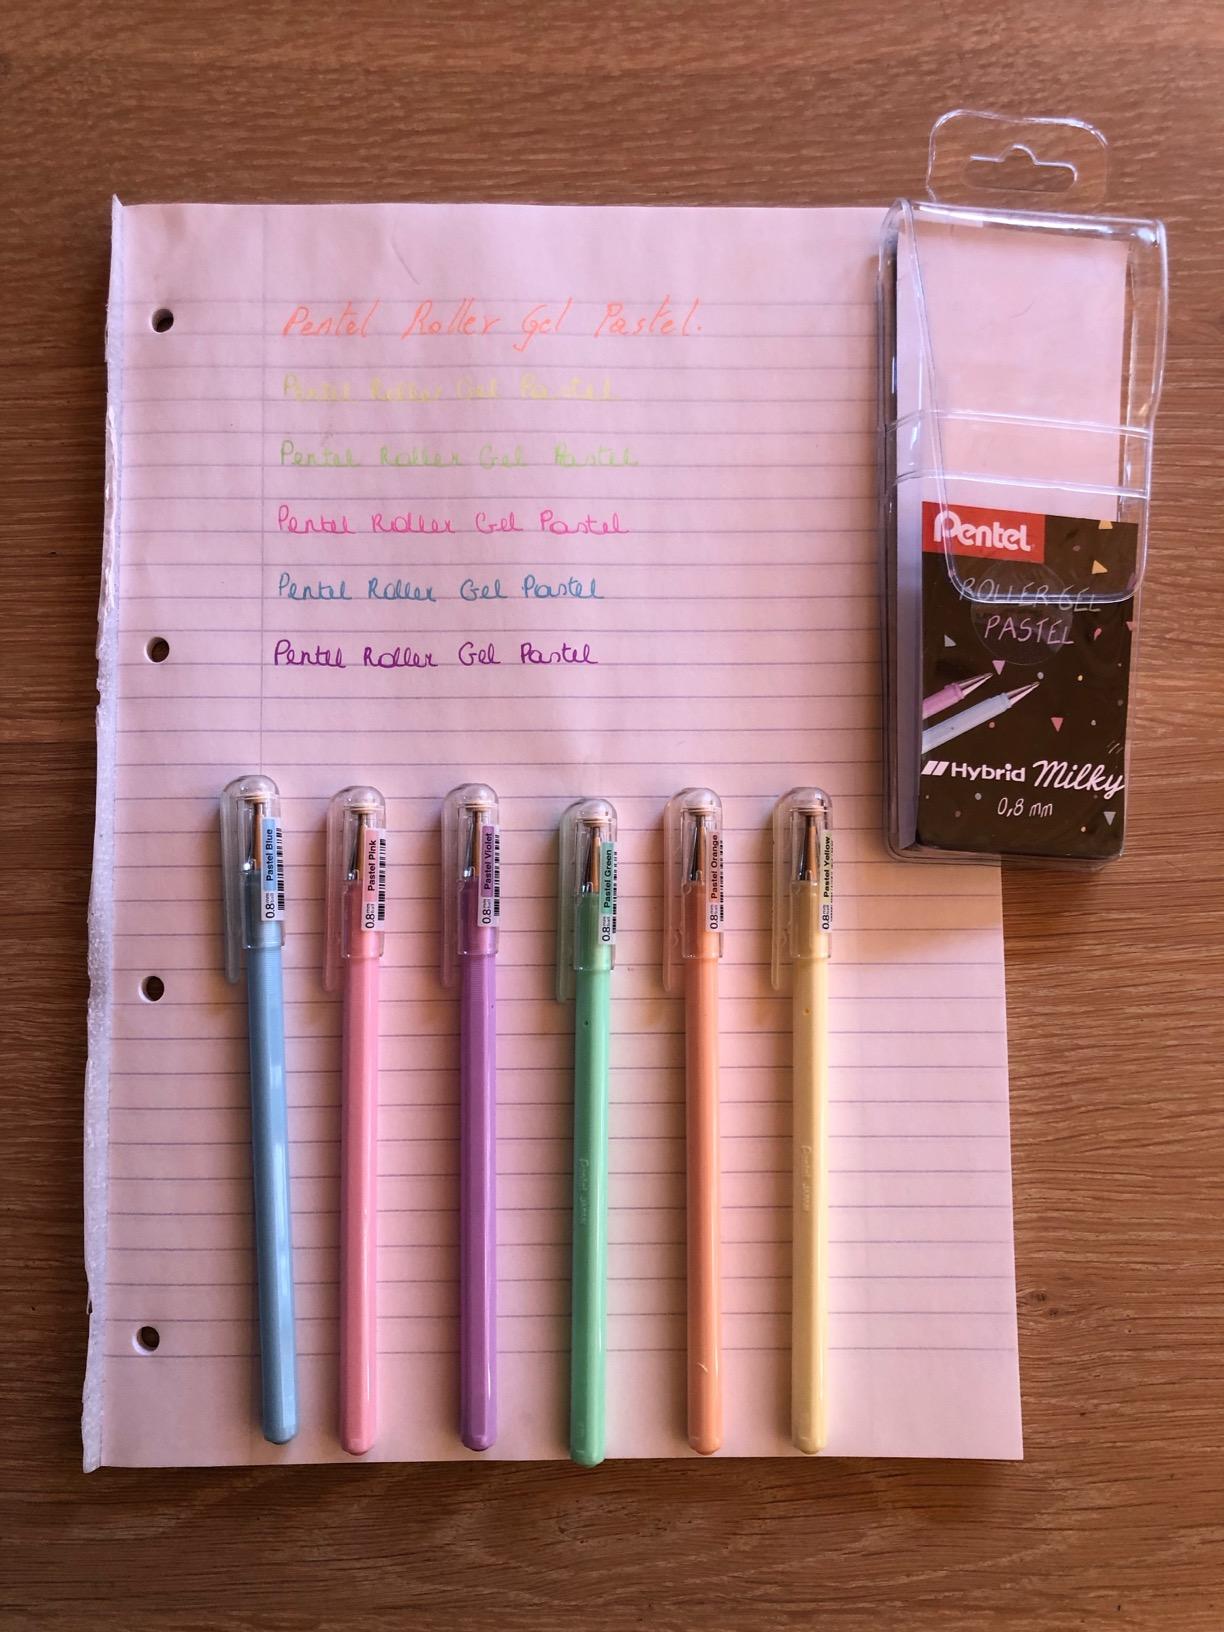 Pentel Roller Gel Pastel.
Pentel Roller Gel Pastel
Pentel Roller Gel Pastel
Pentel Roller Gel Pastel
Pentel Roller Gel Pastel
Pentel Roller Gel Pastel
Pentel
ROLLER GEL
PASTEL
Hybrid Milky
0,8 mm
0.8 mm Pastel Blue
0.8 mm Pastel Pink
0.8 mm Pastel Violet
0.8 mm Pastel Green
0.8 mm Pastel Orange
0.8 mm Pastel Yellow
Pentel JAPAN